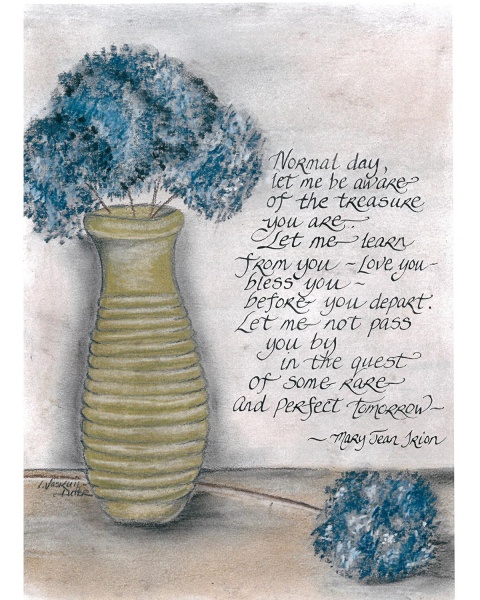 Normal day,
let me be aware
of the treasure
you are.
Let me learn
from you - Love you -
bless you -
before you depart.
Let me not pass
you by
in the quest
of some rare
And perfect tomorrow -
~ Mary Jean Irion